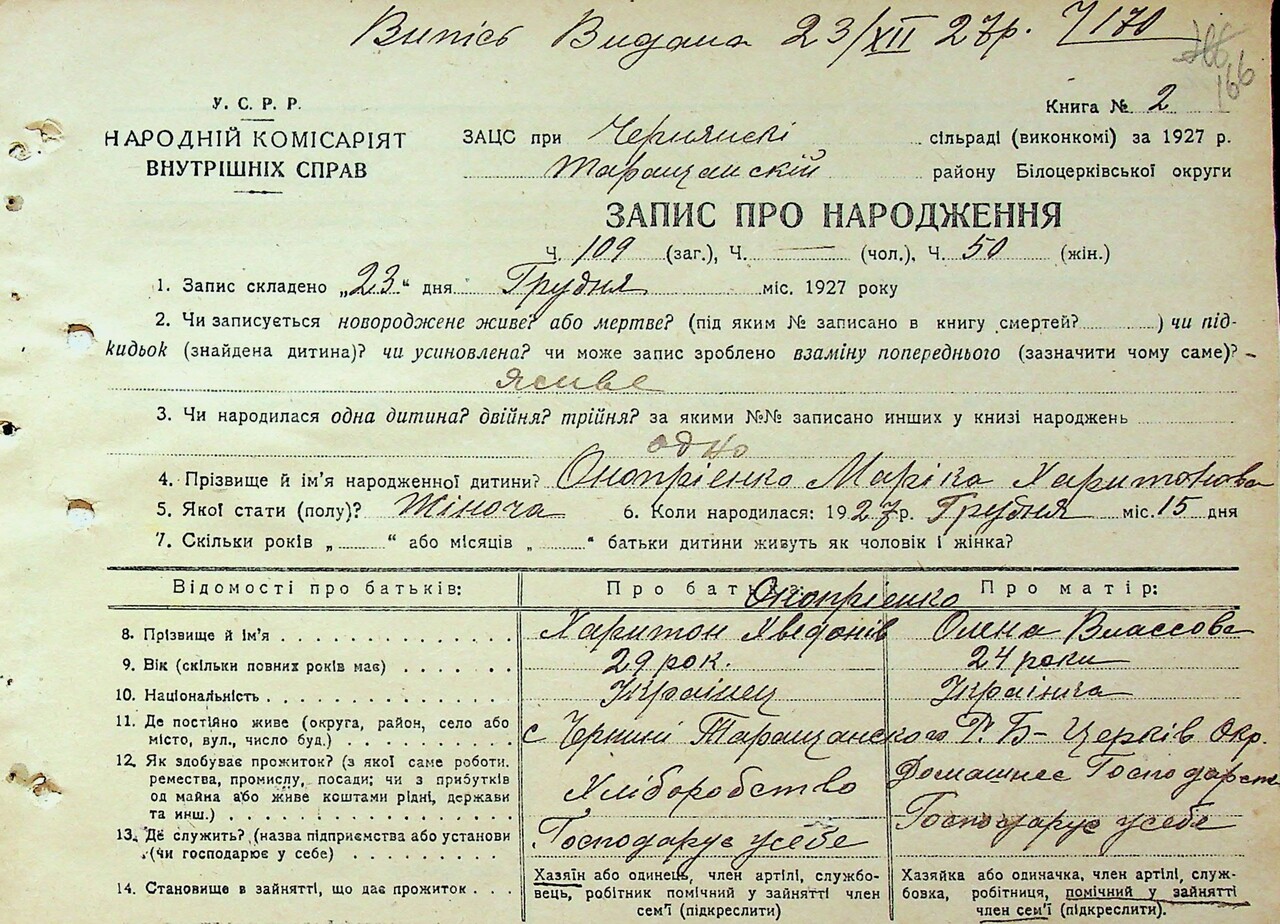 Випісь Видана 23/XII 27р. 7170
166
166
У. С. Р. Р.
НАРОДНІЙ КОМІСАРІЯТ
ВНУТРІШНІХ СПРАВ
Книга № 2
ЗАЦС при Чернянскі сільраді (виконкомі) за 1927 р.
Таращанскій району Білоцерківської округи
ЗАПИС ПРО НАРОДЖЕННЯ
Ч. 109 (заг.), Ч. — (чол.), Ч. 50 (жін.)
1. Запис складено „23.“ дня Грудня міс. 1927 року
2. Чи записується новороджене живе? або мертве? (під яким № записано в книгу смертей? ) чи під-
кидьок (знайдена дитина)? чи усиновлена? чи може запис зроблено взаміну попереднього (зазначити чому саме)? –
Живе
3. Чи народилася одна дитина? двійня? трійня? за якими №№ записано инших у книзі народжень
одно
4. Прізвище й ім'я народженної дитини? Онопрієнко Маріка Харитонова
5. Якої статі (полу)? Жіноча 6. Коли народилася: 1927 р. Грудня міс. 15 дня
7. Скільки років „ “ або місяців „ “ батьки дитини живуть як чоловік і жінка?
Відомості про батьків: Про батька: Про матір:
Онопрієнко
8. Прізвище й ім'я Харитон Хведонів Олена Влассова
9. Вік (скільки повних років має) 29 рок. 24 роки
10. Національність Українец Українка
11. Де постійно живе (округа, район, село або
місто, вул., число буд.) с Чернині Таращанского Р. Б-Церків Окр.
12. Як здобуває прожиток? (з якої саме роботи.
ремества, промислу, посади; чи з прибутків
од майна або живе коштами рідні, держави
та инш.) Хліборобство Домашнєє Господарст
13. Де служить? (назва підприємства або установи
(чи господарює у себе) Господарує усебе Господарує усебе
14. Становище в зайнятті, що дає прожиток
Хазяїн або одинець, член артілі, службо-
вець, робітник помічний у зайнятті член
сем'ї (підкреслити)
Хазяйка або одиначка, член артілі, служ-
бовка, робітниця, помічний у зайнятті
член сем'ї (підкреслити).